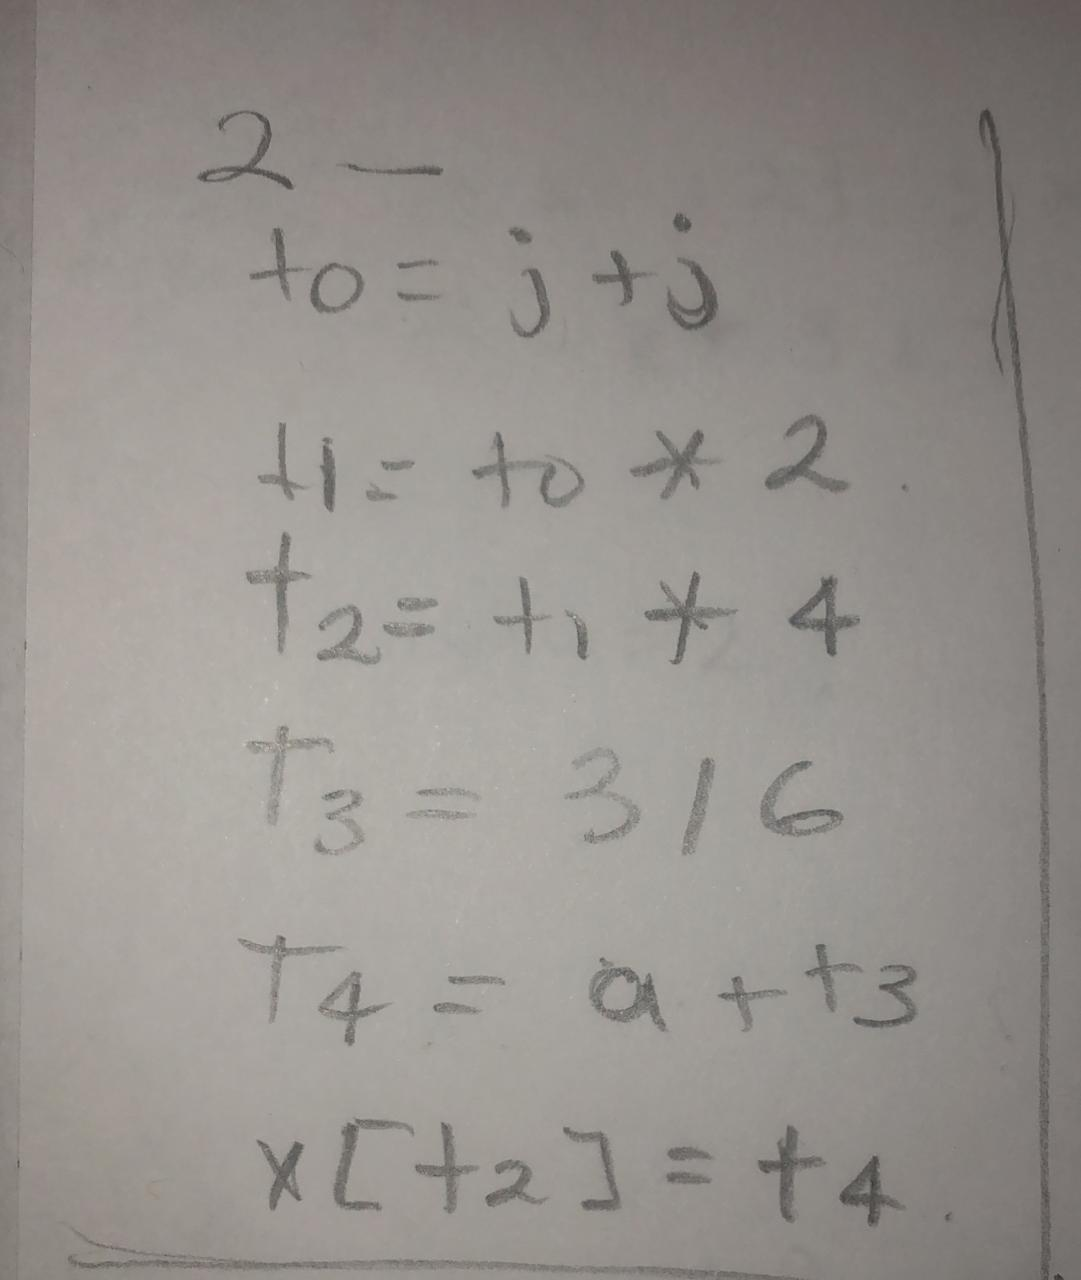 2 —
t0 = j + j
t1 = t0 * 2.
t2 = t1 * 4
T3 = 3 / 6
T4 = a + t3
x[t2] = t4.